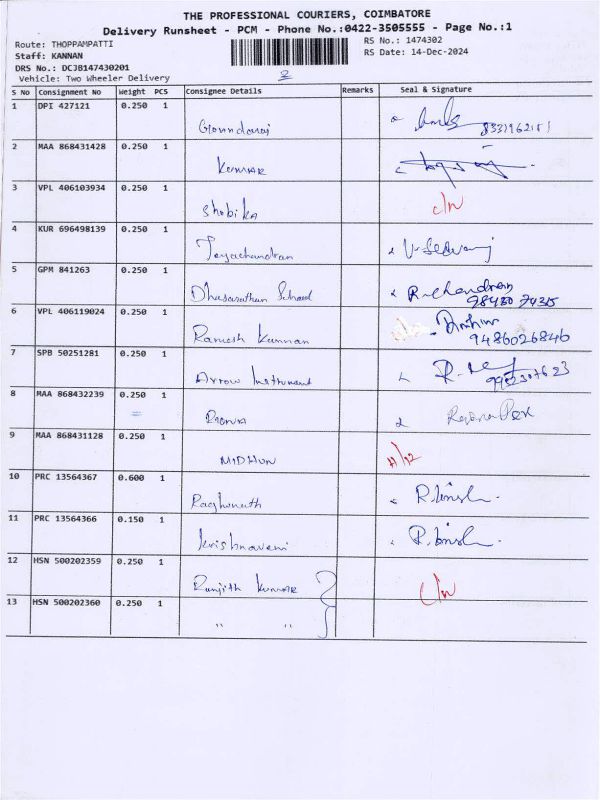 THE PROFESSIONAL COURIERS, COIMBATORE
Delivery Runsheet - PCM - Phone No.:0422-3505555 - Page No.:1
Route: THOPPAMPATTI RS No.: 1474302
Staff: KANNAN RS Date: 14-Dec-2024
DRS No.: DCJB147430201
Vehicle: Two Wheeler Delivery 2
S No Consignment No Weight PCS Consignee Details Remarks Seal & Signature
1 DPI 427121 0.250 1
Govindaraj
2 MAA 868431428 0.250 1
KUMAR
3 VPL 406103934 0.250 1
Shobika
4 KUR 696498139 0.250 1
Jeyachandran
5 GPM 841263 0.250 1
Dhasarathan School R.chandran
98430 74315
6 VPL 406119024 0.250 1
Ramesh Kannan 9486026846
7 SPB 50251281 0.250 1
Arrow Instrument
8 MAA 868432239 0.250 1
9 MAA 868431128 0.250 1
MIDHUN
10 PRC 13564367 0.600 1
Raghunath
11 PRC 13564366 0.150 1
Krishnaveni
12 HSN 500202359 0.250 1
Ranjith Kumar
13 HSN 500202360 0.250 1
" "